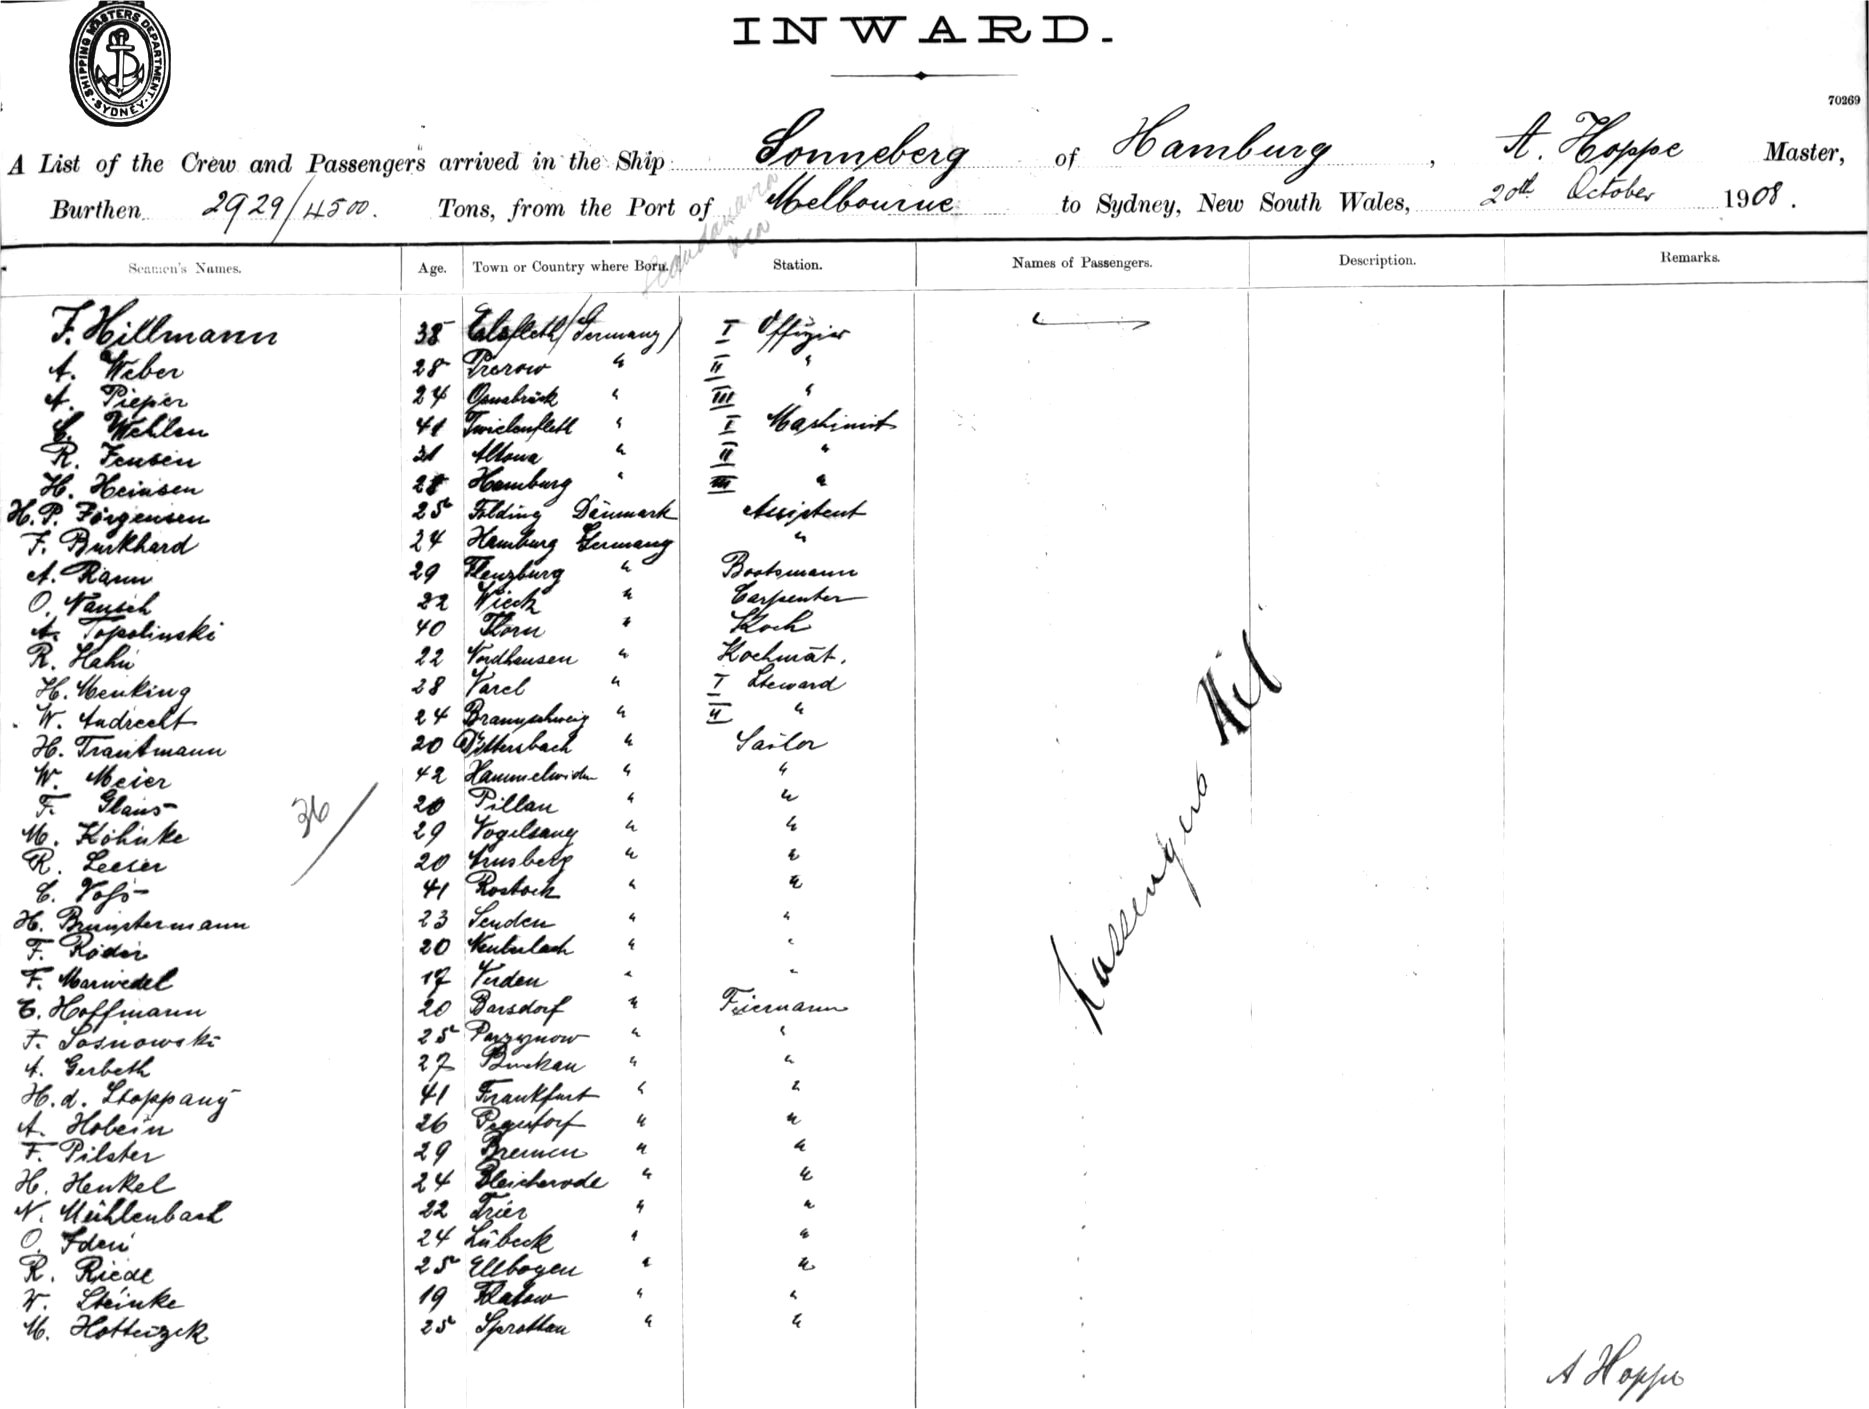 SHIPPING MASTERS DEPARTMENT. SYDNEY.
INWARD.
70269
A List of the Crew and Passengers arrived in the Ship Sonneberg of Hamburg, A. Hoppe Master,
Burthen 2929/4500. Tons, from the Port of Melbourne to Sydney, New South Wales, 20th October 1908.
Seamen's Names. Age. Town or Country where Born. Station. Names of Passengers. Description. Remarks.
F. Hillmann 38 Elsfleth (Germany) I Offizier
A. Weber 28 Prerow " II "
A. Pieper 24 Osnabrück " III "
C. Wehlen 41 Twielenfleth " I Maschinist
R. Jensen 31 Altona " II "
H. Heinsen 28 Hamburg " III "
H. P. Jörgensen 25 Folding Dänmark Assistent
F. Burkhard 24 Hamburg Germany "
A. Ramm 29 Flenzburg " Bootsmann
O. Nausch 22 Wieck " Carpenter
A. Topolinski 40 Thorn " Koch
R. Hahn 22 Nordhausen " Kochmat.
H. Menking 28 Varel " I Steward
W. Andrecht 24 Braunschweig " II "
H. Trautmann 20 Dittersbach " Sailor
W. Meier 42 Hammelwarden " "
F. Glans 20 Pillau " "
36
M. Köhnke 29 Vogelsang " "
R. Leeser 20 Arnsberg " "
C. Voß 41 Rostock " "
H. Brunstermann 23 Senden " "
F. Röder 20 " "
F. Marwedel 17 Verden " "
C. Hoffmann 20 Barsdorf " Feiermann
F. Sosnowski 25 " "
A. Gerbeth 27 Buckau " "
H. d. Stoppany 41 Frankfurt " "
A. Hobein 26 " "
F. Pilster 29 Bremen " "
H. Henkel 24 Bleicherode " "
N. Mühlenbach 22 Trier " "
O. Iden 24 Lübeck " "
R. Riedl 25 Ellbogen " "
W. Steinke 19 " "
M. Hotteizek 25 Sprottau " "
Passengers Nil
A Hoppe